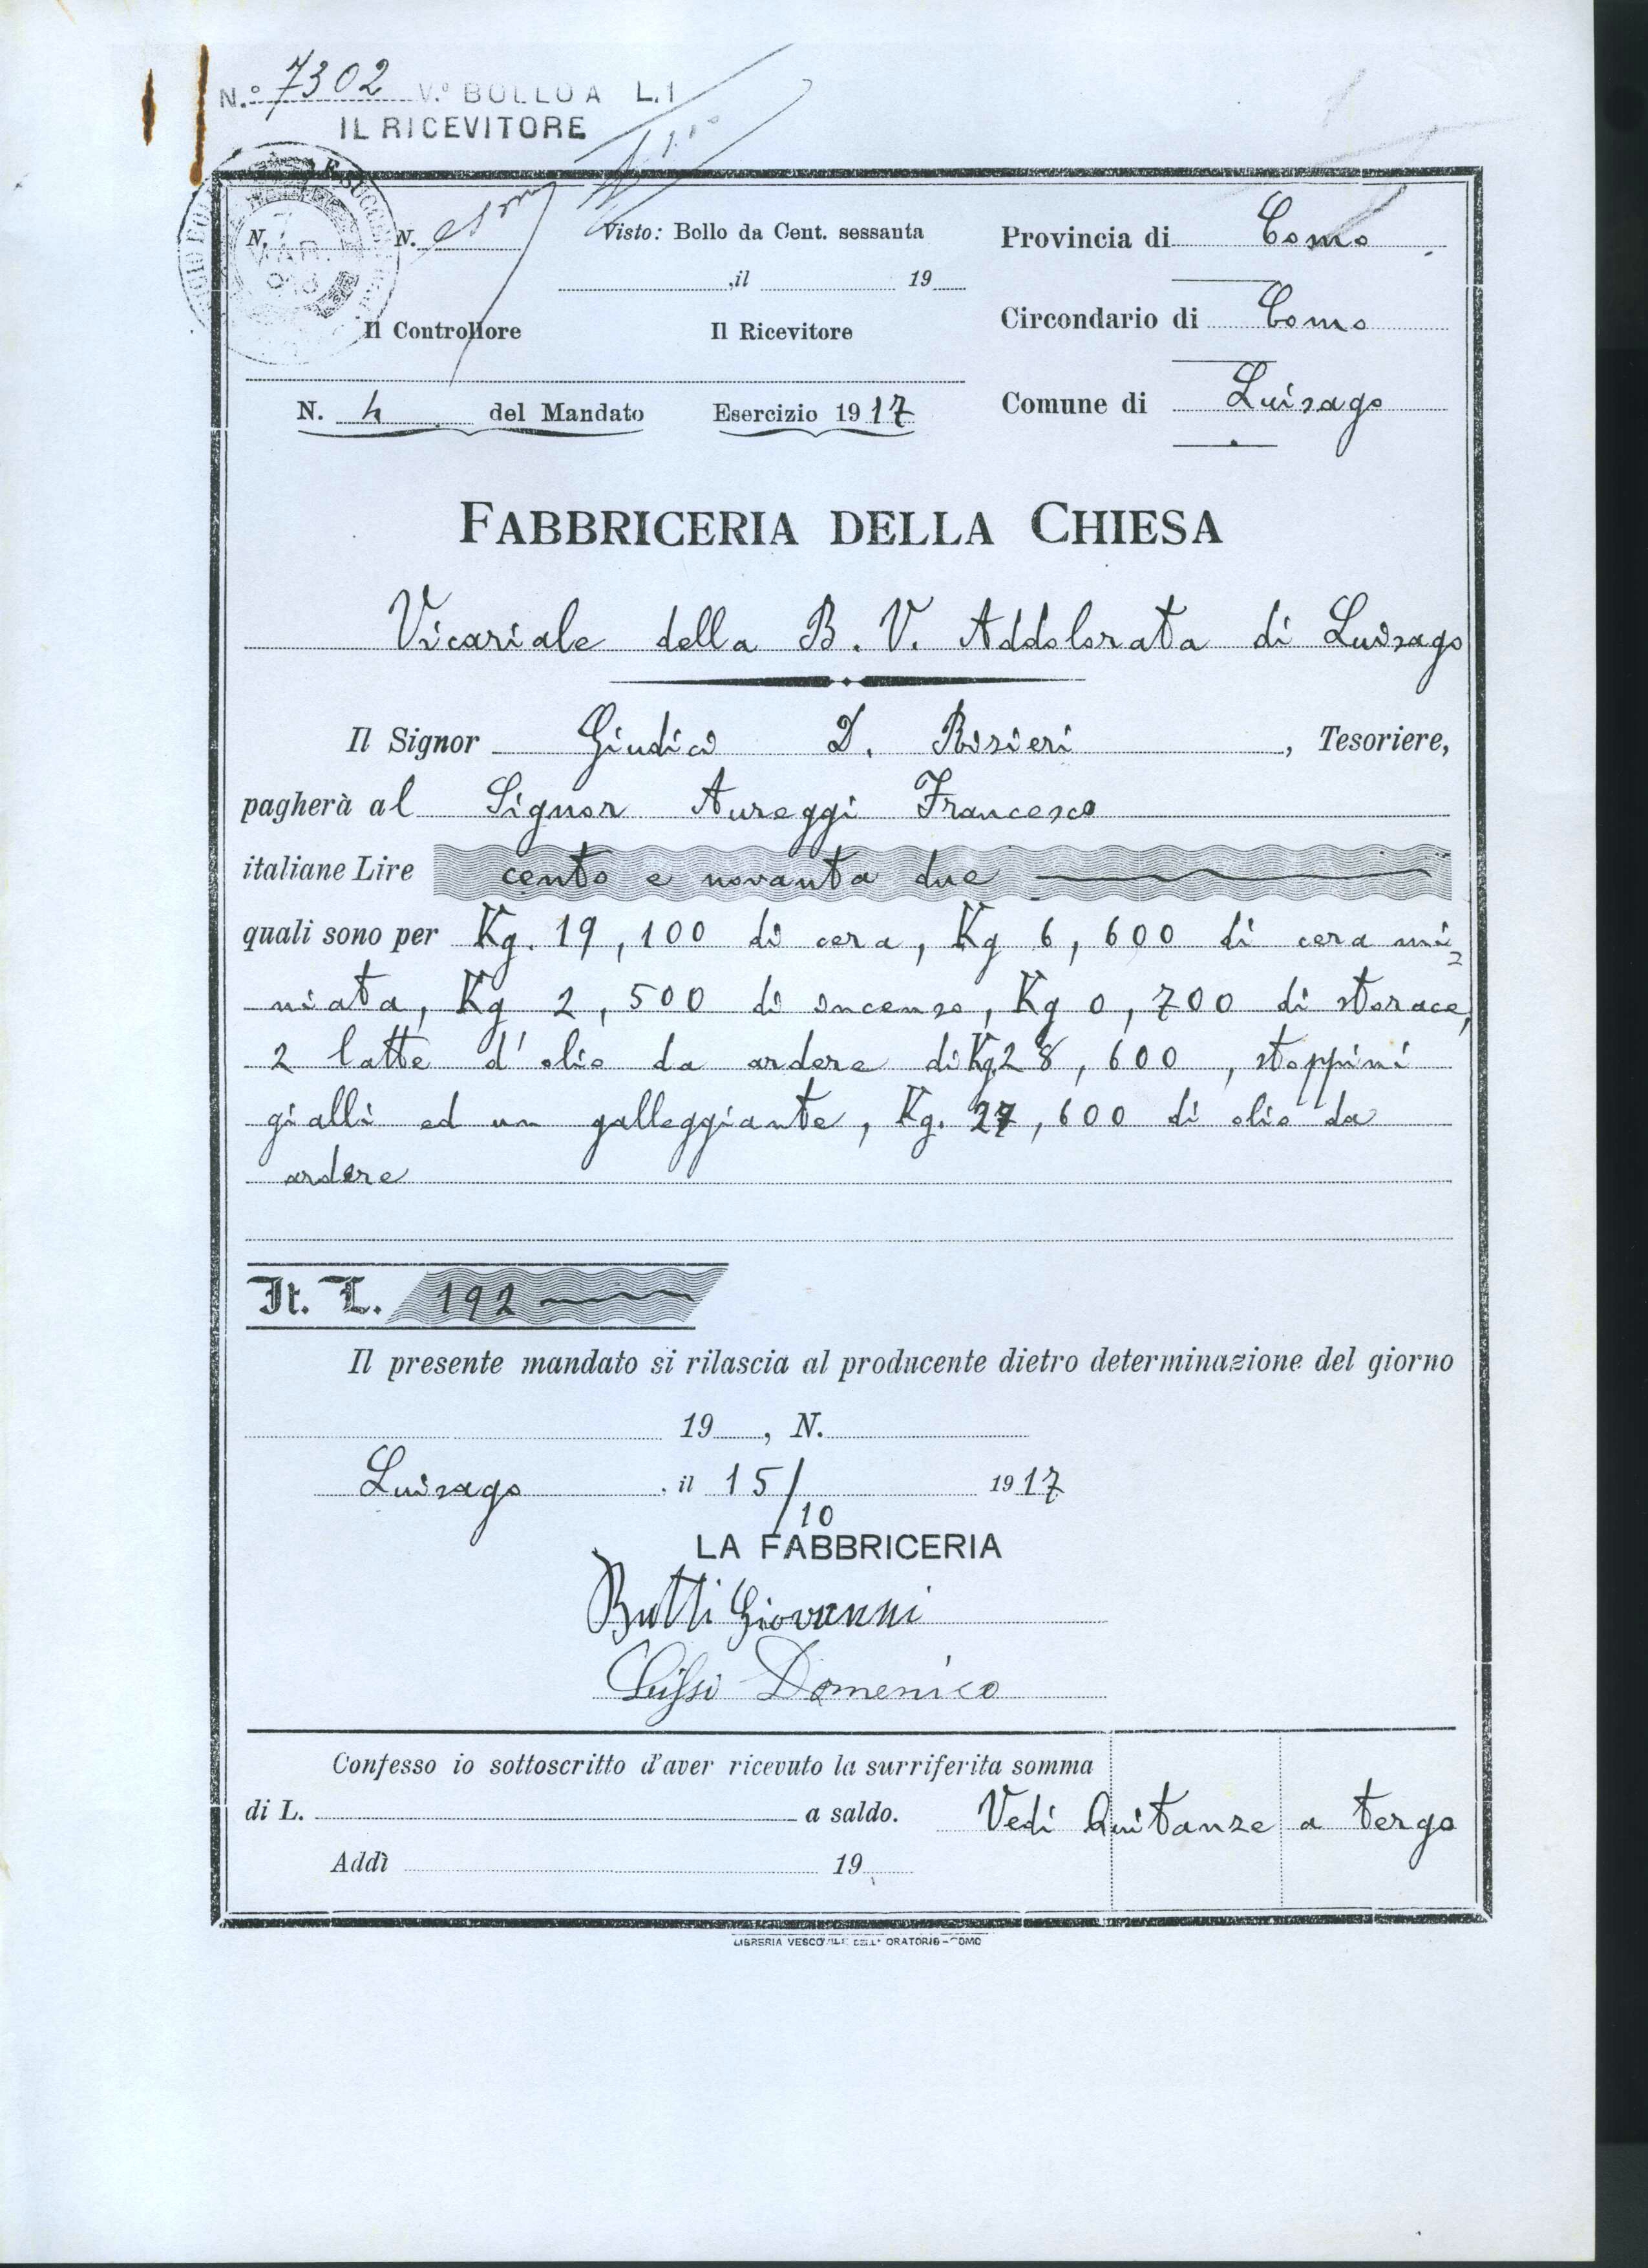 N.° 7302 V.° BOLLO A L. 1
IL RICEVITORE
N. N. Visto: Bollo da Cent. sessanta
, il 19
Il Controllore Il Ricevitore
Provincia di Como
Circondario di Como
Comune di Luisago
N. 4 del Mandato Esercizio 1917
FABBRICERIA DELLA CHIESA
Vicariale della B. V. Addolorata di Luisago
Il Signor Giudici D. Risieri, Tesoriere,
pagherà al Signor Aureggi Francesco
italiane Lire cento e novanta due
quali sono per Kg. 19,100 di cera, Kg 6,600 di cera mi=
niata, Kg 2,500 di incenso, Kg 0,700 di storace,
2 latte d'olio da ardere di Kg. 28,600, stoppini
gialli ed un galleggiante, Kg. 27,600 di olio da
ardere
It. L. 192
Il presente mandato si rilascia al producente dietro determinazione del giorno
19 , N.
Luisago . il 15/10 1917
LA FABBRICERIA
Butti Giovanni
Domenico
Confesso io sottoscritto d'aver ricevuto la surriferita somma
di L. a saldo. Vedi Quitanze a tergo
Addì 19
LIBRERIA VESCOVILE DELL' ORATORIO - COMO